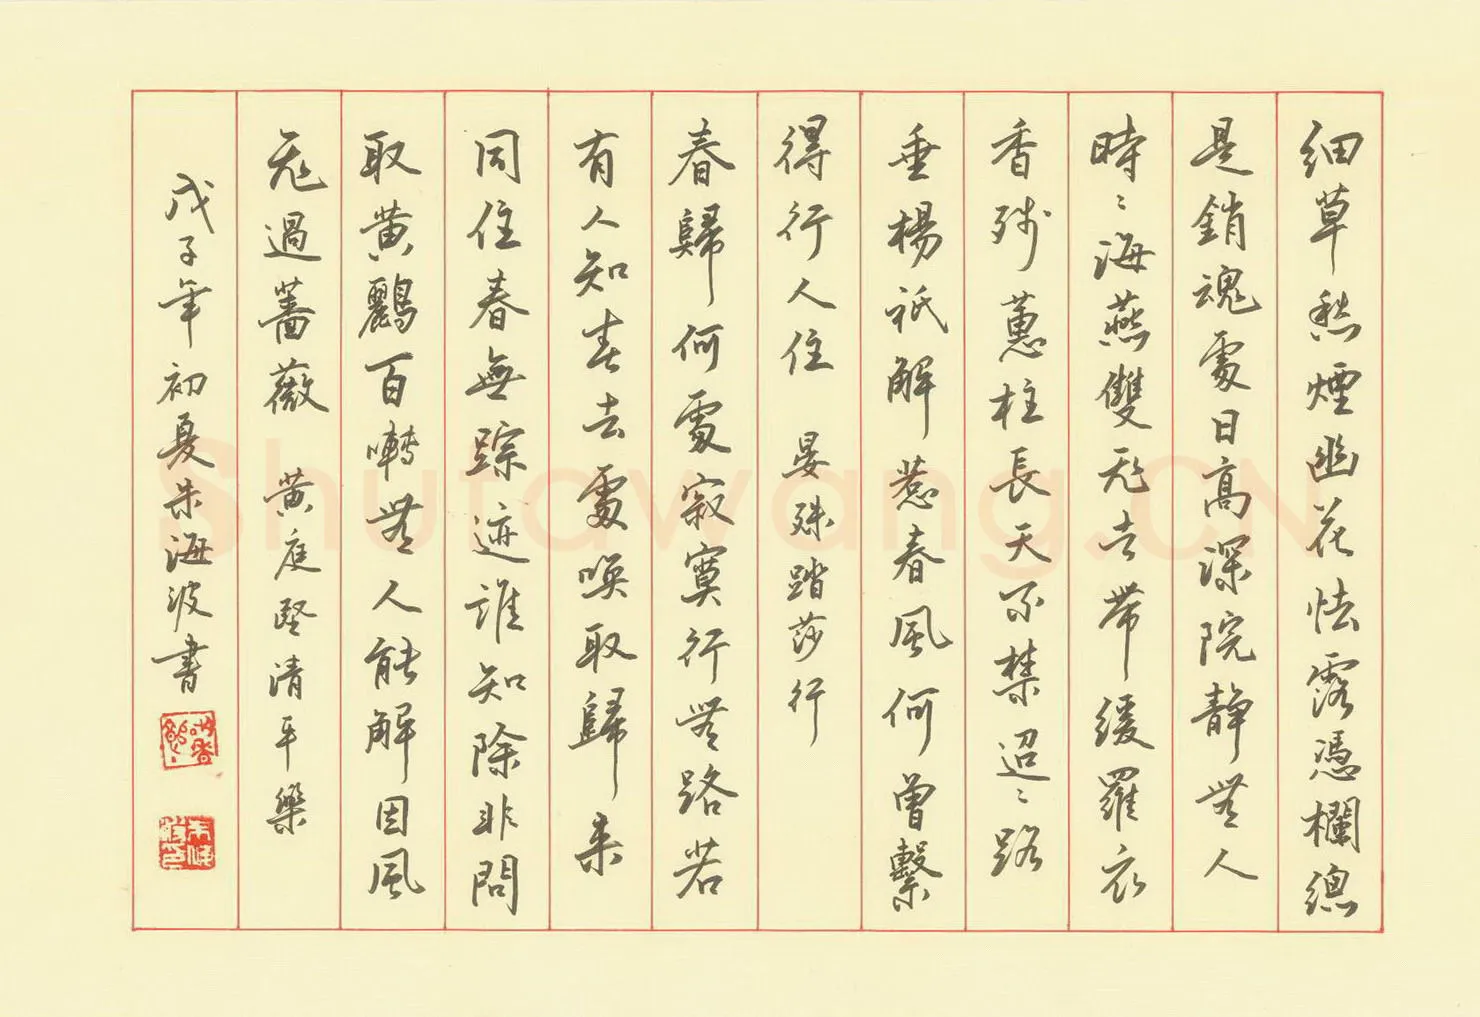 細草愁煙幽花怯露憑欄總
是銷魂處日高深院靜無人
時〻海燕雙飛去帶緩羅衣
香殘蕙炷長天不禁迢〻路
垂楊衹解惹春風何曾繫
得行人住 晏殊踏莎行
春歸何處寂寞行無路若
有人知春去處喚取歸來
同住春無踪迹誰知除非問
取黄鸝百囀無人能解因風
飛過薔薇 黄庭堅清平樂
戊子年初夏朱海波書
Shufawang.CN